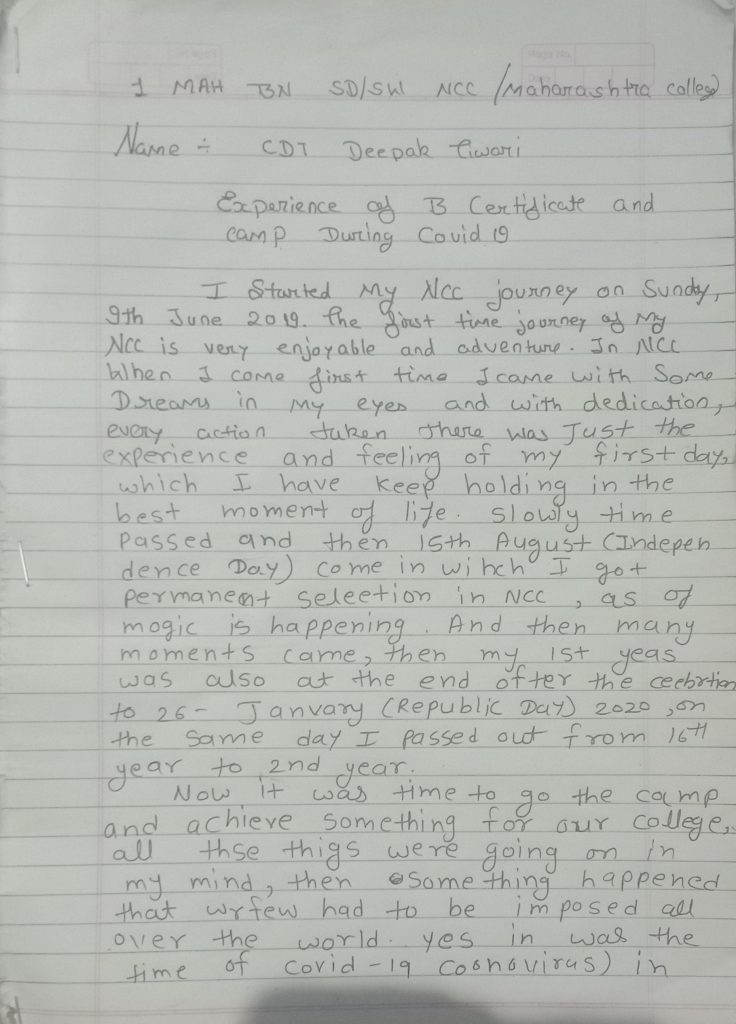 1 MAH BN SD/SW NCC /Maharashtra colleg)
Name ÷ CDT Deepak Tiwari
Experience of B Certificate and
camp During Covid 19
I Started My NCC journey on Sunday,
9th June 2019. The first time journey of My
NCC is very enjoyable and adventure. In NCC
When I come first time I came with Some
Dreams in my eyes and with dedication,
every action taken there was Just the
experience and feeling of my first day,
which I have keep holding in the
best moment of life. slowly time
Passed and then 15th August (Indepen
dence Day) come in wihch I got
permanent seleetion in NCC , as of
mogic is happening. And then many
moments came, then my 1st yeas
was also at the end ofter the ceebrtion
to 26- Janvary (Republic Day) 2020 , on
the same day I passed out from 16th
year to 2nd year.
Now it was time to go the camp
and achieve something for our college,
all thse thigs were going on in
my mind, then something happened
that wrfew had to be imposed all
over the world. yes in was the
time of covid-19 coonovirus) in